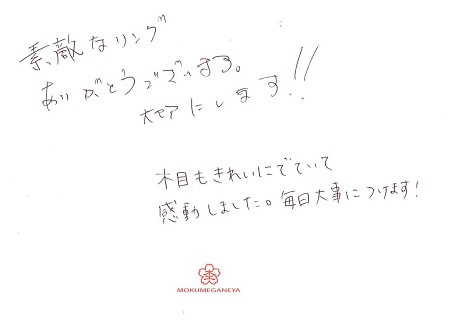 素敵なリング
ありがとうございます。
大切にします!!
木目もきれいにでていて
感動しました。毎日大事につけます!
MOKUMEGANEYA